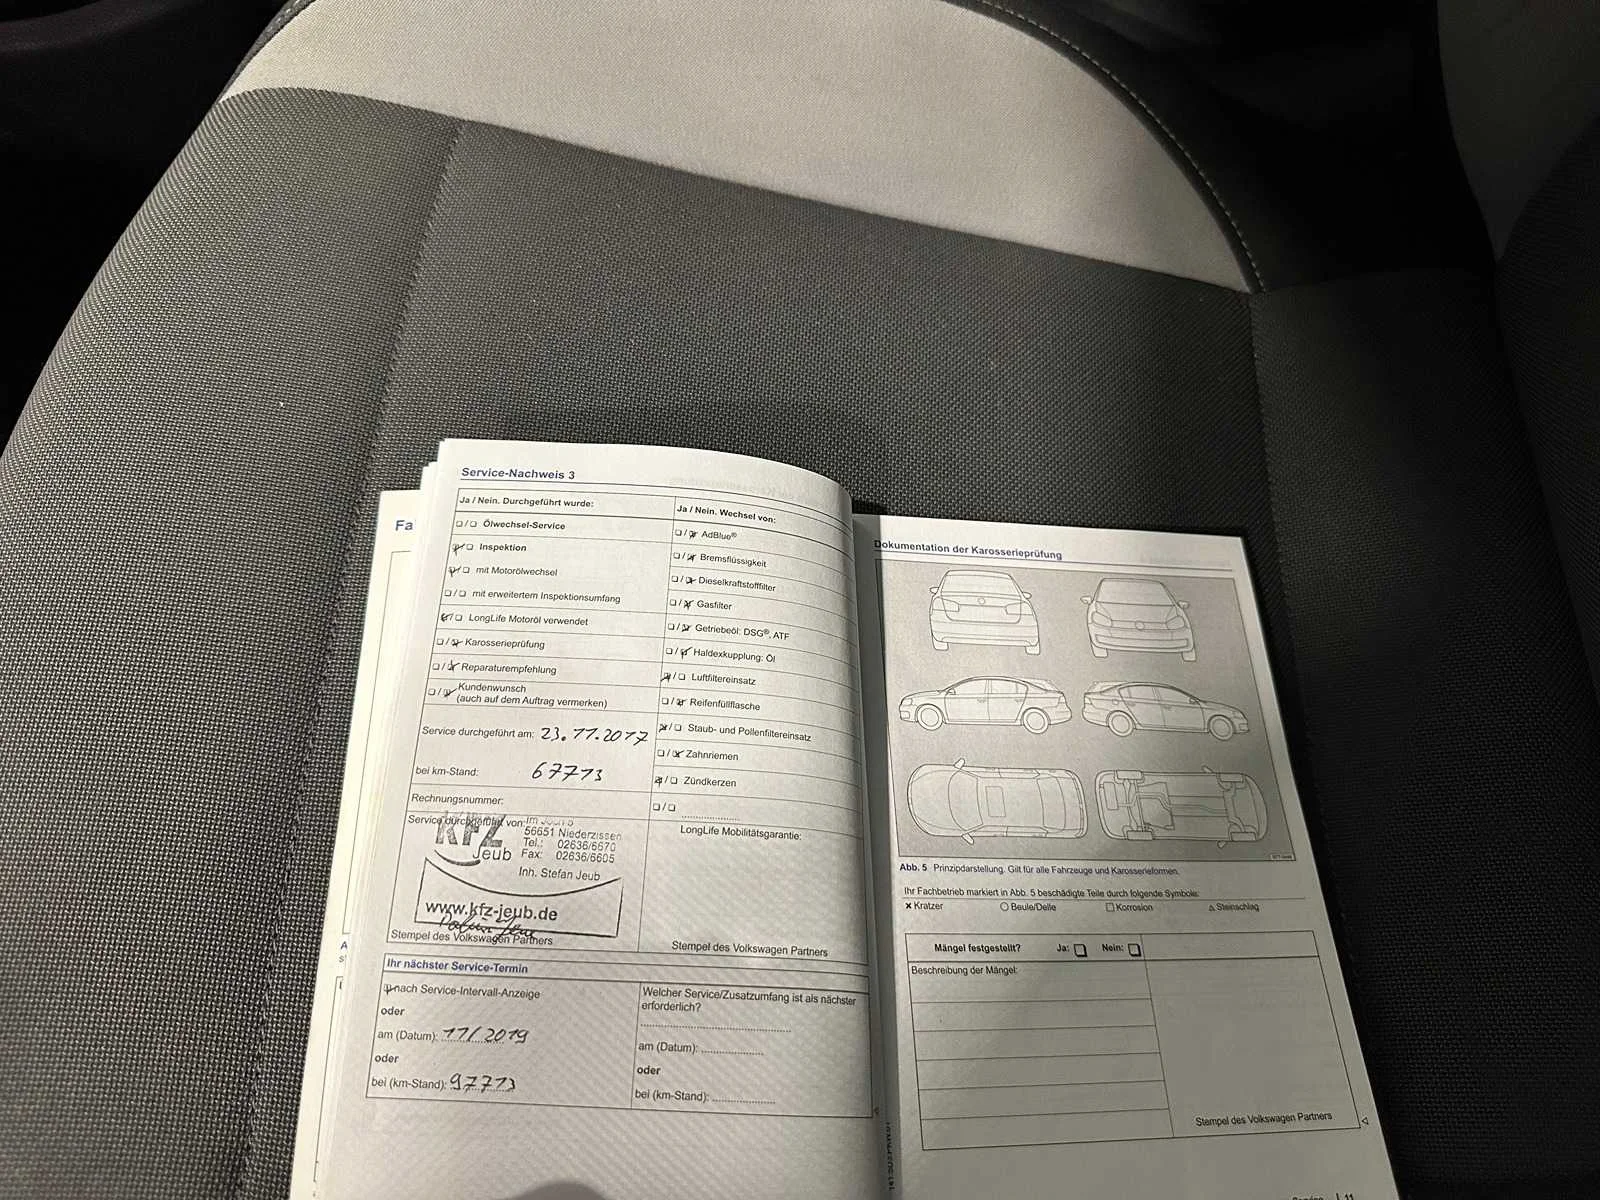 Fa
Service-Nachweis 3
Ja / Nein. Durchgeführt wurde:
Ölwechsel-Service
Inspektion
mit Motorölwechsel
mit erweitertem Inspektionsumfang
LongLife Motoröl verwendet
Karosserieprüfung
Reparaturempfehlung
Kundenwunsch
(auch auf dem Auftrag vermerken)
Service durchgeführt am: 23.11.2017
bei km-Stand: 67713
Rechnungsnummer:
Service durchgeführt von:
Kfz Jeub
56651 Niederzissen
Tel.: 02636/6670
Fax: 02636/6605
Inh. Stefan Jeub
www.kfz-jeub.de
Stempel des Volkswagen Partners
Ja / Nein. Wechsel von:
AdBlue®
Bremsflüssigkeit
Dieselkraftstofffilter
Gasfilter
Getriebeöl: DSG®, ATF
Haldexkupplung: Öl
Luftfiltereinsatz
Reifenfüllflasche
Staub- und Pollenfiltereinsatz
Zahnriemen
Zündkerzen
LongLife Mobilitätsgarantie:
Stempel des Volkswagen Partners
Ihr nächster Service-Termin
nach Service-Intervall-Anzeige
oder
am (Datum): 11/2019
oder
bei (km-Stand): 97713
Welcher Service/Zusatzumfang ist als nächster
erforderlich?
am (Datum):
oder
bei (km-Stand):
Dokumentation der Karosserieprüfung
Abb. 5 Prinzipdarstellung. Gilt für alle Fahrzeuge und Karosserieformen.
Ihr Fachbetrieb markiert in Abb. 5 beschädigte Teile durch folgende Symbole:
Kratzer Beule/Delle Korrosion Steinschlag
Mängel festgestellt? Ja: Nein:
Beschreibung der Mängel:
Stempel des Volkswagen Partners